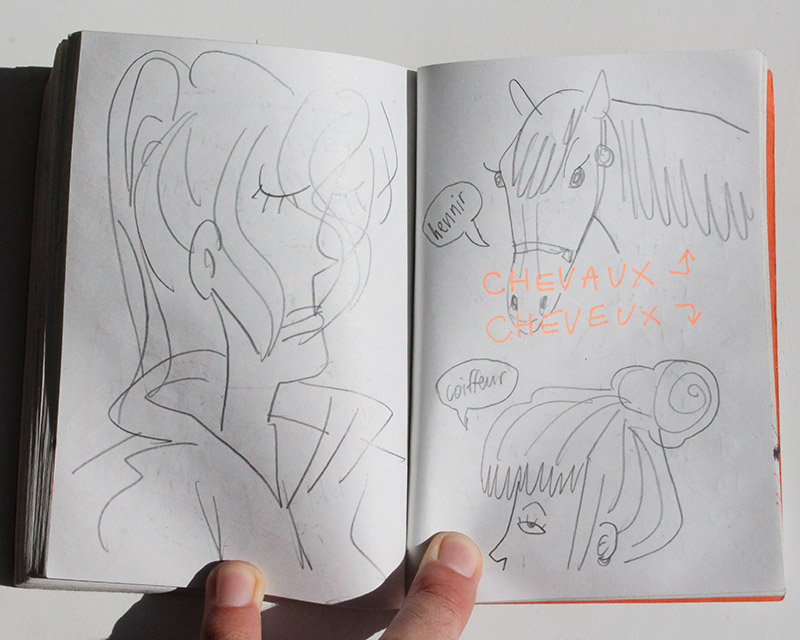 hennir
CHEVAUX ↑
CHEVEUX ↓
coiffeur